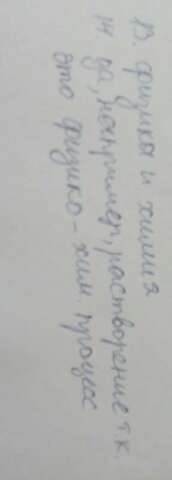 13. физика и химия
14. да, например, растворение т.к.
это физико-хим. процесс